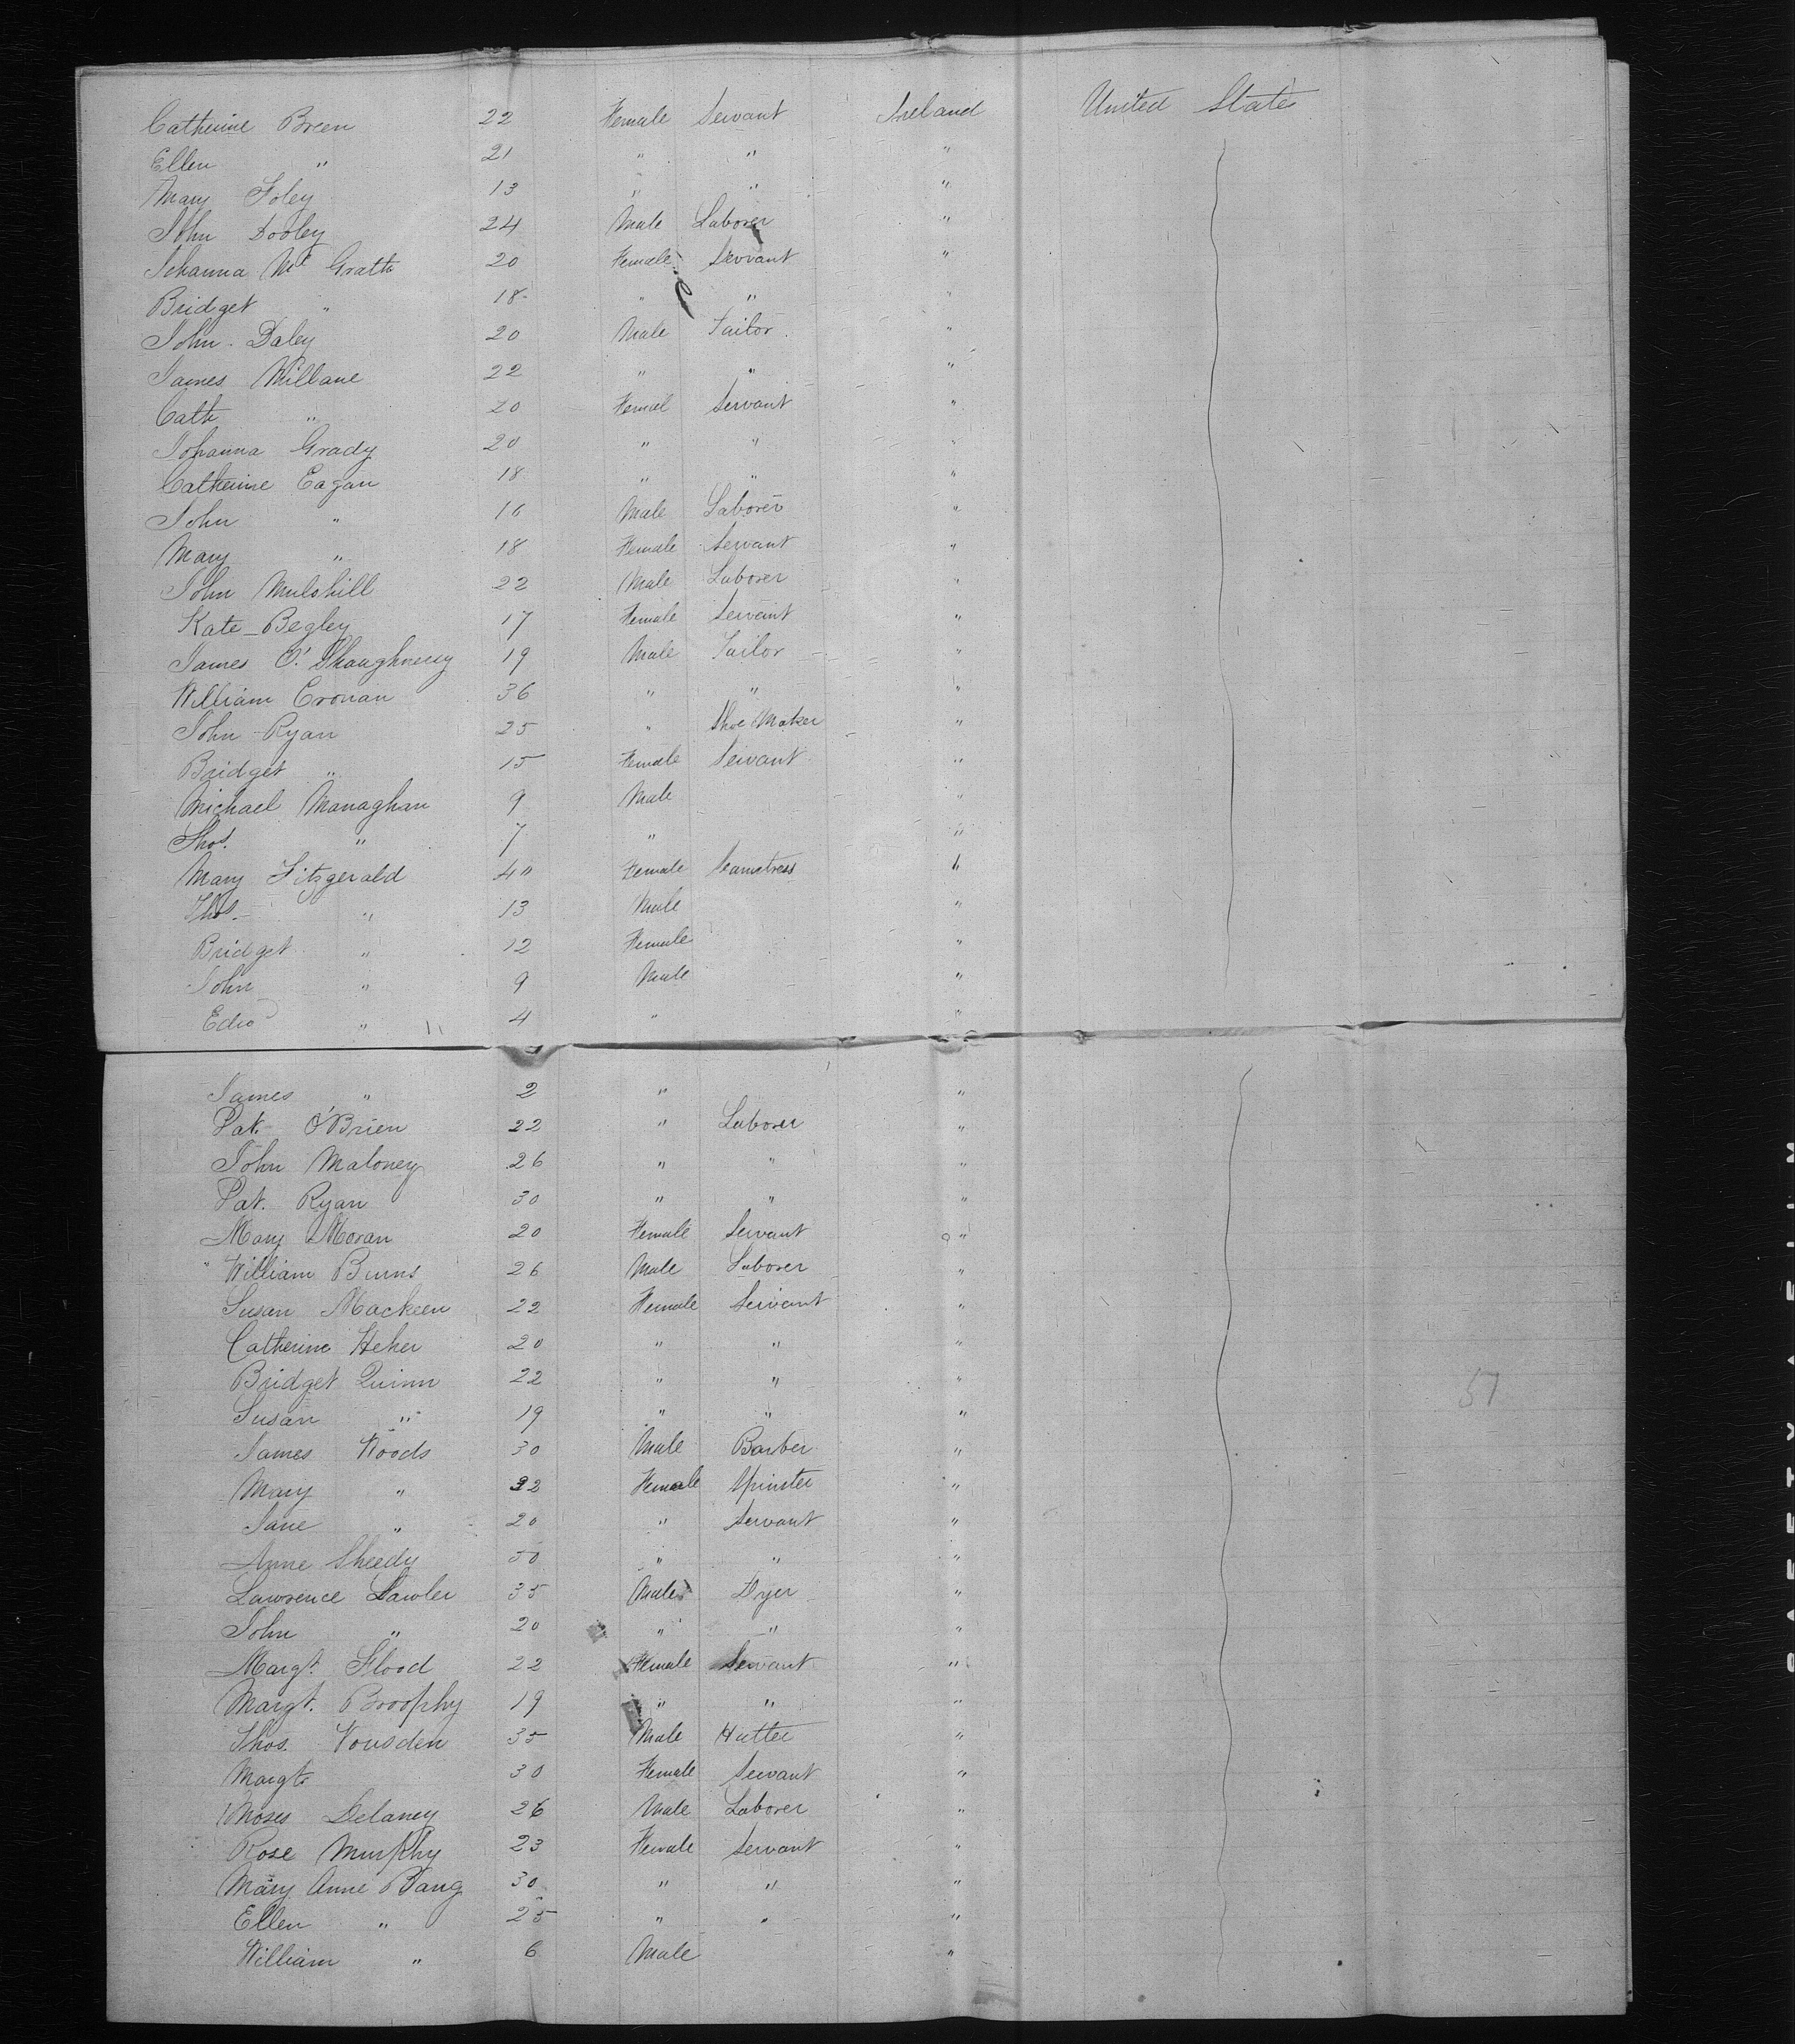 Catherine Breen 22 Female Servant Ireland United States
Ellen " 21 " " "
Mary Foley 13 " " "
John Dooley 24 Male Laborer "
Johanna Mc Grath 20 Female Servant "
Bridget " 18 " " "
John Daley 20 Male Tailor "
James Millane 22 " " "
Cath " 20 Femal Servant "
Johanna Grady 20 " " "
Catherine Eagan 18 " " "
John " 16 Male Laborer "
Mary " 18 Female Servant "
John Mulshill 22 Male Laborer "
Kate Begley 17 Female Servant "
James O'Shaughnessy 19 Male Tailor "
William Cronan 36 " " "
John Ryan 25 " Shoe Maker "
Bridget " 15 Female Servant "
Michael Managhan 9 Male "
Thos. " 7 " "
Mary Fitzgerald 40 Female Seamstress "
Thos. " 13 Male "
Bridget " 12 Female "
John " 9 Male "
Edwd " 4 " "
James " 2 " "
Pat. O'Brien 22 " Laborer "
John Maloney 26 " " "
Pat. Ryan 30 " " "
Mary Moran 20 Female Servant "
William Burns 26 Male Laborer "
Susan Mackeen 22 Female Servant "
Catherine Heher 20 " " "
Bridget Quinn 22 " " "
51
Susan " 19 " " "
James Woods 30 Male Barber "
Mary " 22 Female Spinster "
Jane " 20 " Servant "
Anne Sheedy 50 " " "
Lawrence Lawler 35 Male Dyer "
John " 20 " " "
Margt. Flood 22 Female Servant "
Margt. Broophy 19 " " "
Thos. Vousden 35 Male Hatter "
Margt 30 Female Servant "
Moses Delaney 26 Male Laborer "
Rose Murphy 23 Female Servant "
Mary Anne Bang 30 " " "
Ellen " 25 " " "
William " 6 Male "